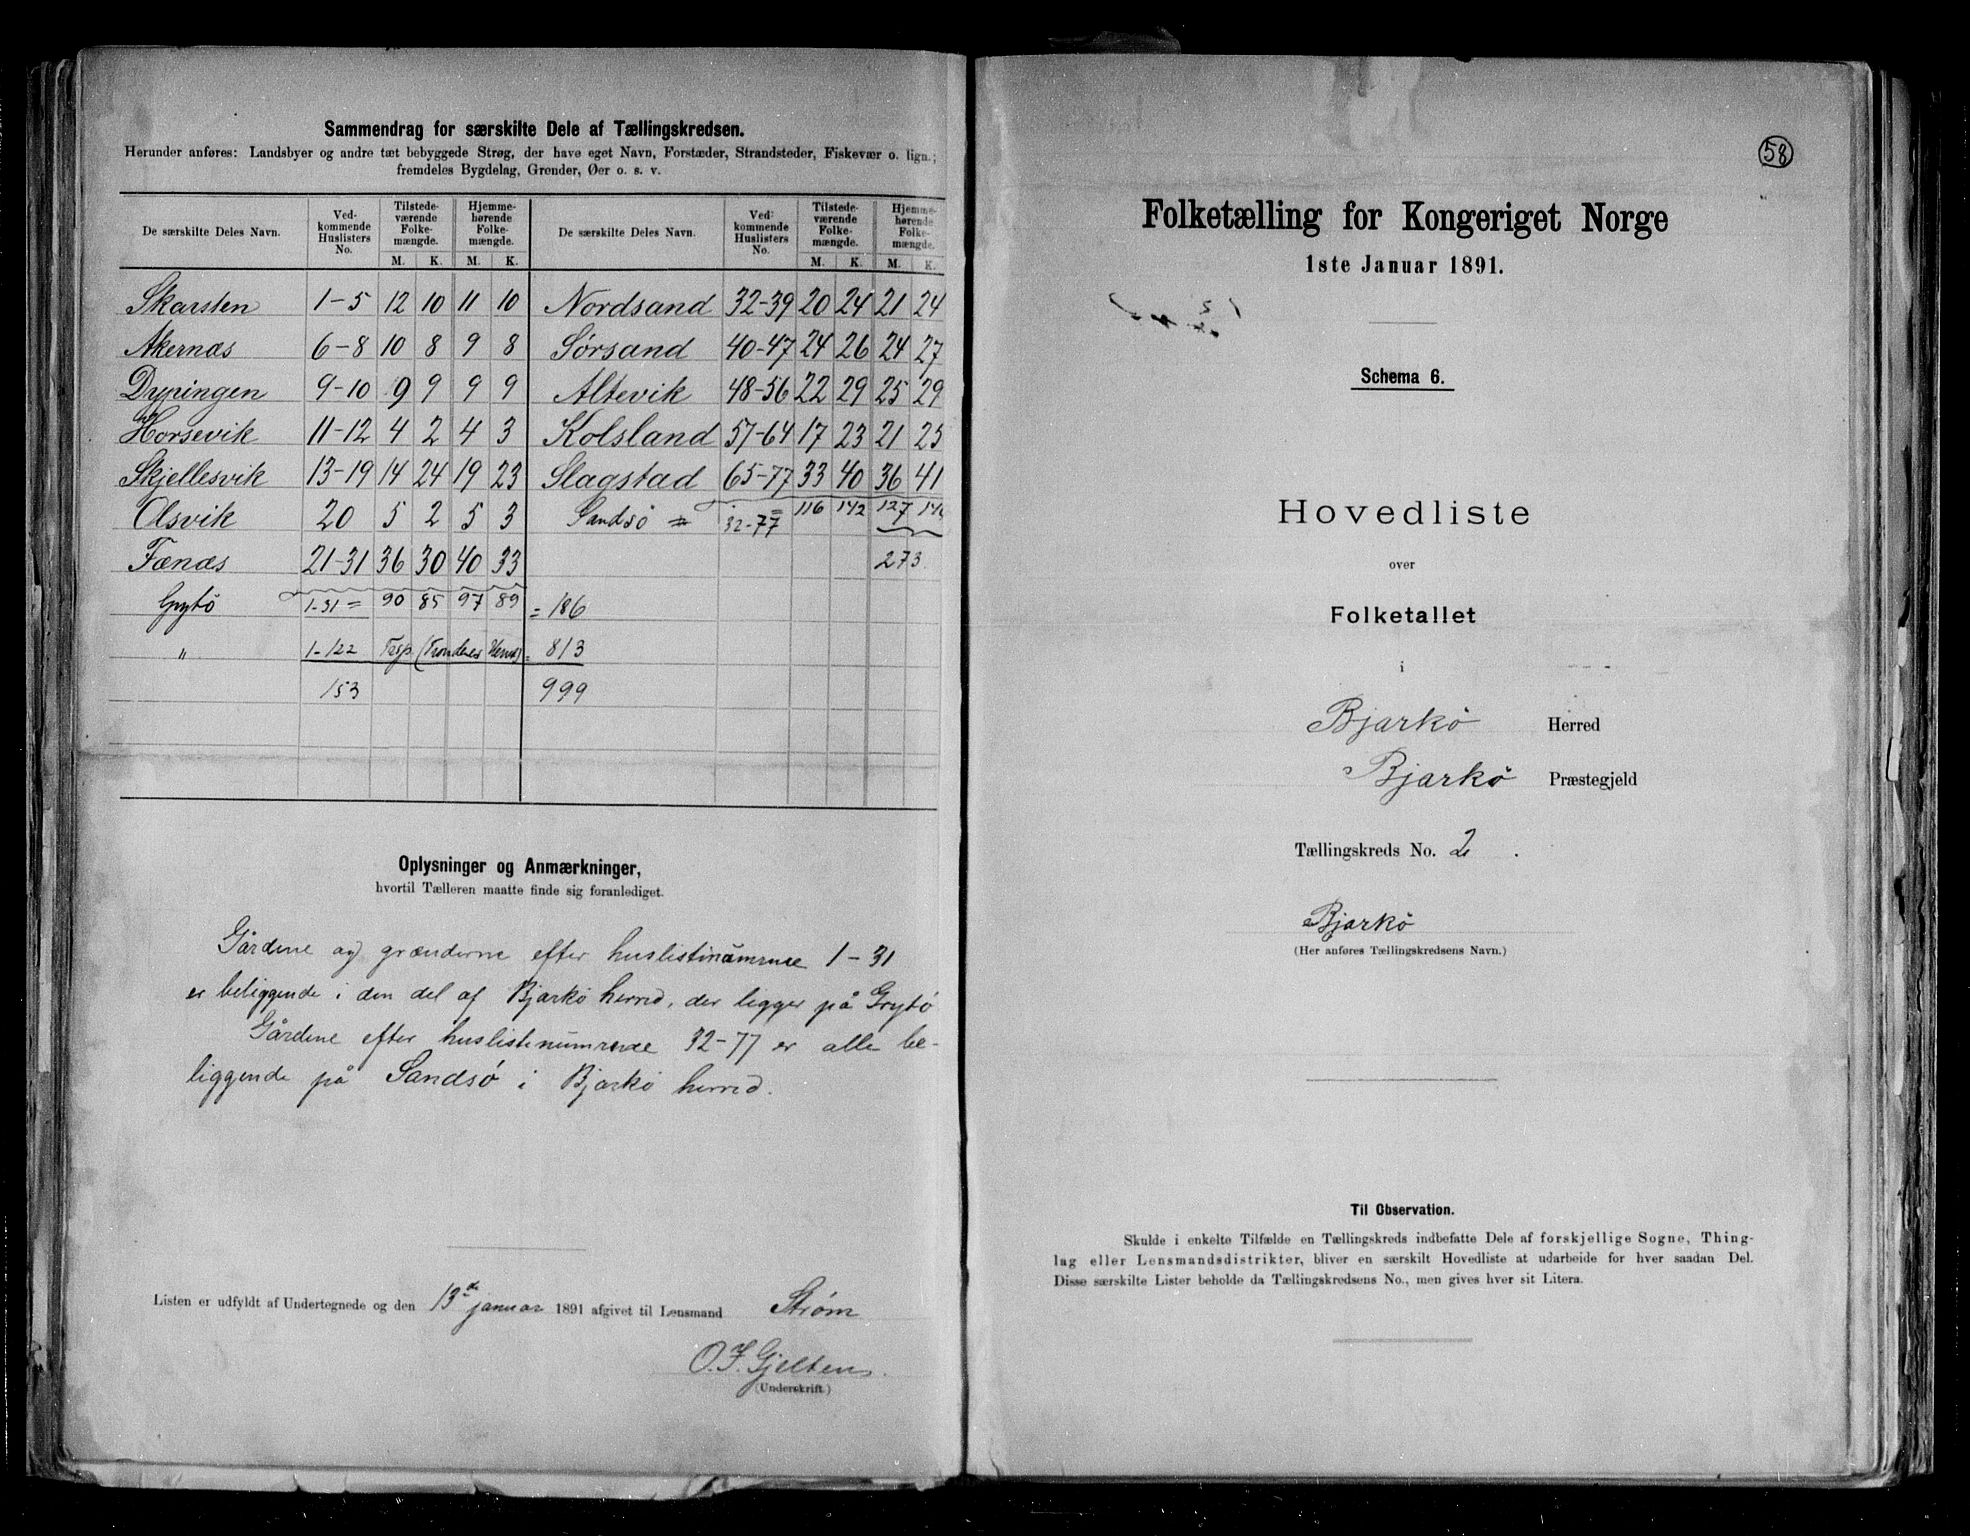 Sammendrag for særskilte Dele af Tællingskredsen.
Herunder anføres: Landsbyer og andre tæt bebyggede Strøg, der have eget Navn, Forstæder, Strandsteder, Fiskevær o. lign.;
fremdeles Bygdelag, Grender, Øer o. s. v.
De særskilte Deles Navn. Ved-kommende Huslisters No. Tilstede-værende Folke-mængde. Hjemme-hørende Folke-mængde. De særskilte Deles Navn. Ved-kommende Huslisters No. Tilstede-værende Folke-mængde. Hjemme-hørende Folke-mængde.
M. K. M. K. M. K. M. K.
Skarsten 1-5 12 10 11 10 Nordsand 32-39 20 24 21 24
Akernæs 6-8 10 8 9 8 Sørsand 40-47 24 26 24 27
Dyringen 9-10 9 9 9 9 Altevik 48-56 22 29 25 29
Horsevik 11-12 4 2 4 3 Kolsland 57-64 17 23 21 25
Skjellesvik 13-19 14 24 19 23 Slagstad 65-77 33 40 36 41
Olsvik 20 5 2 5 3 Sandsö = 32-77 = 116 142 127
Fænæs 21-31 36 30 40 33 273
Grytö 1-31 = 90 85 97 89 = 186
" 1-122 (Trondenes Herred) = 813
153 999
Oplysninger og Anmærkninger,
hvortil Tælleren maatte finde sig foranlediget.
Gårdene og grænderne efter huslistinumrene 1-31
er beliggende i den del af Bjarkö herred, der ligger på Grytö
Gårdene efter huslistenumrene 32-77 er alle be-
liggende på Sandsö i Bjarkö herred.
Listen er udfyldt af Undertegnede og den 13de januar 1891 afgivet til Lensmand Strøm
O. F. Gjelten
(Underskrift.)
58
Folketælling for Kongeriget Norge
1ste Januar 1891.
Schema 6.
Hovedliste
over
Folketallet
i
Bjarkö Herred
Bjarkö Præstegjeld
Tællingskreds No. 2.
Bjarkö
(Her anføres Tællingskredsens Navn.)
Til Observation.
Skulde i enkelte Tilfælde en Tællingskreds indbefatte Dele af forskjellige Sogne, Thing-
lag eller Lensmandsdistrikter, bliver en særskilt Hovedliste at udarbeide for hver saadan Del.
Disse særskilte Lister beholde da Tællingskredsens No., men gives hver sit Litera.